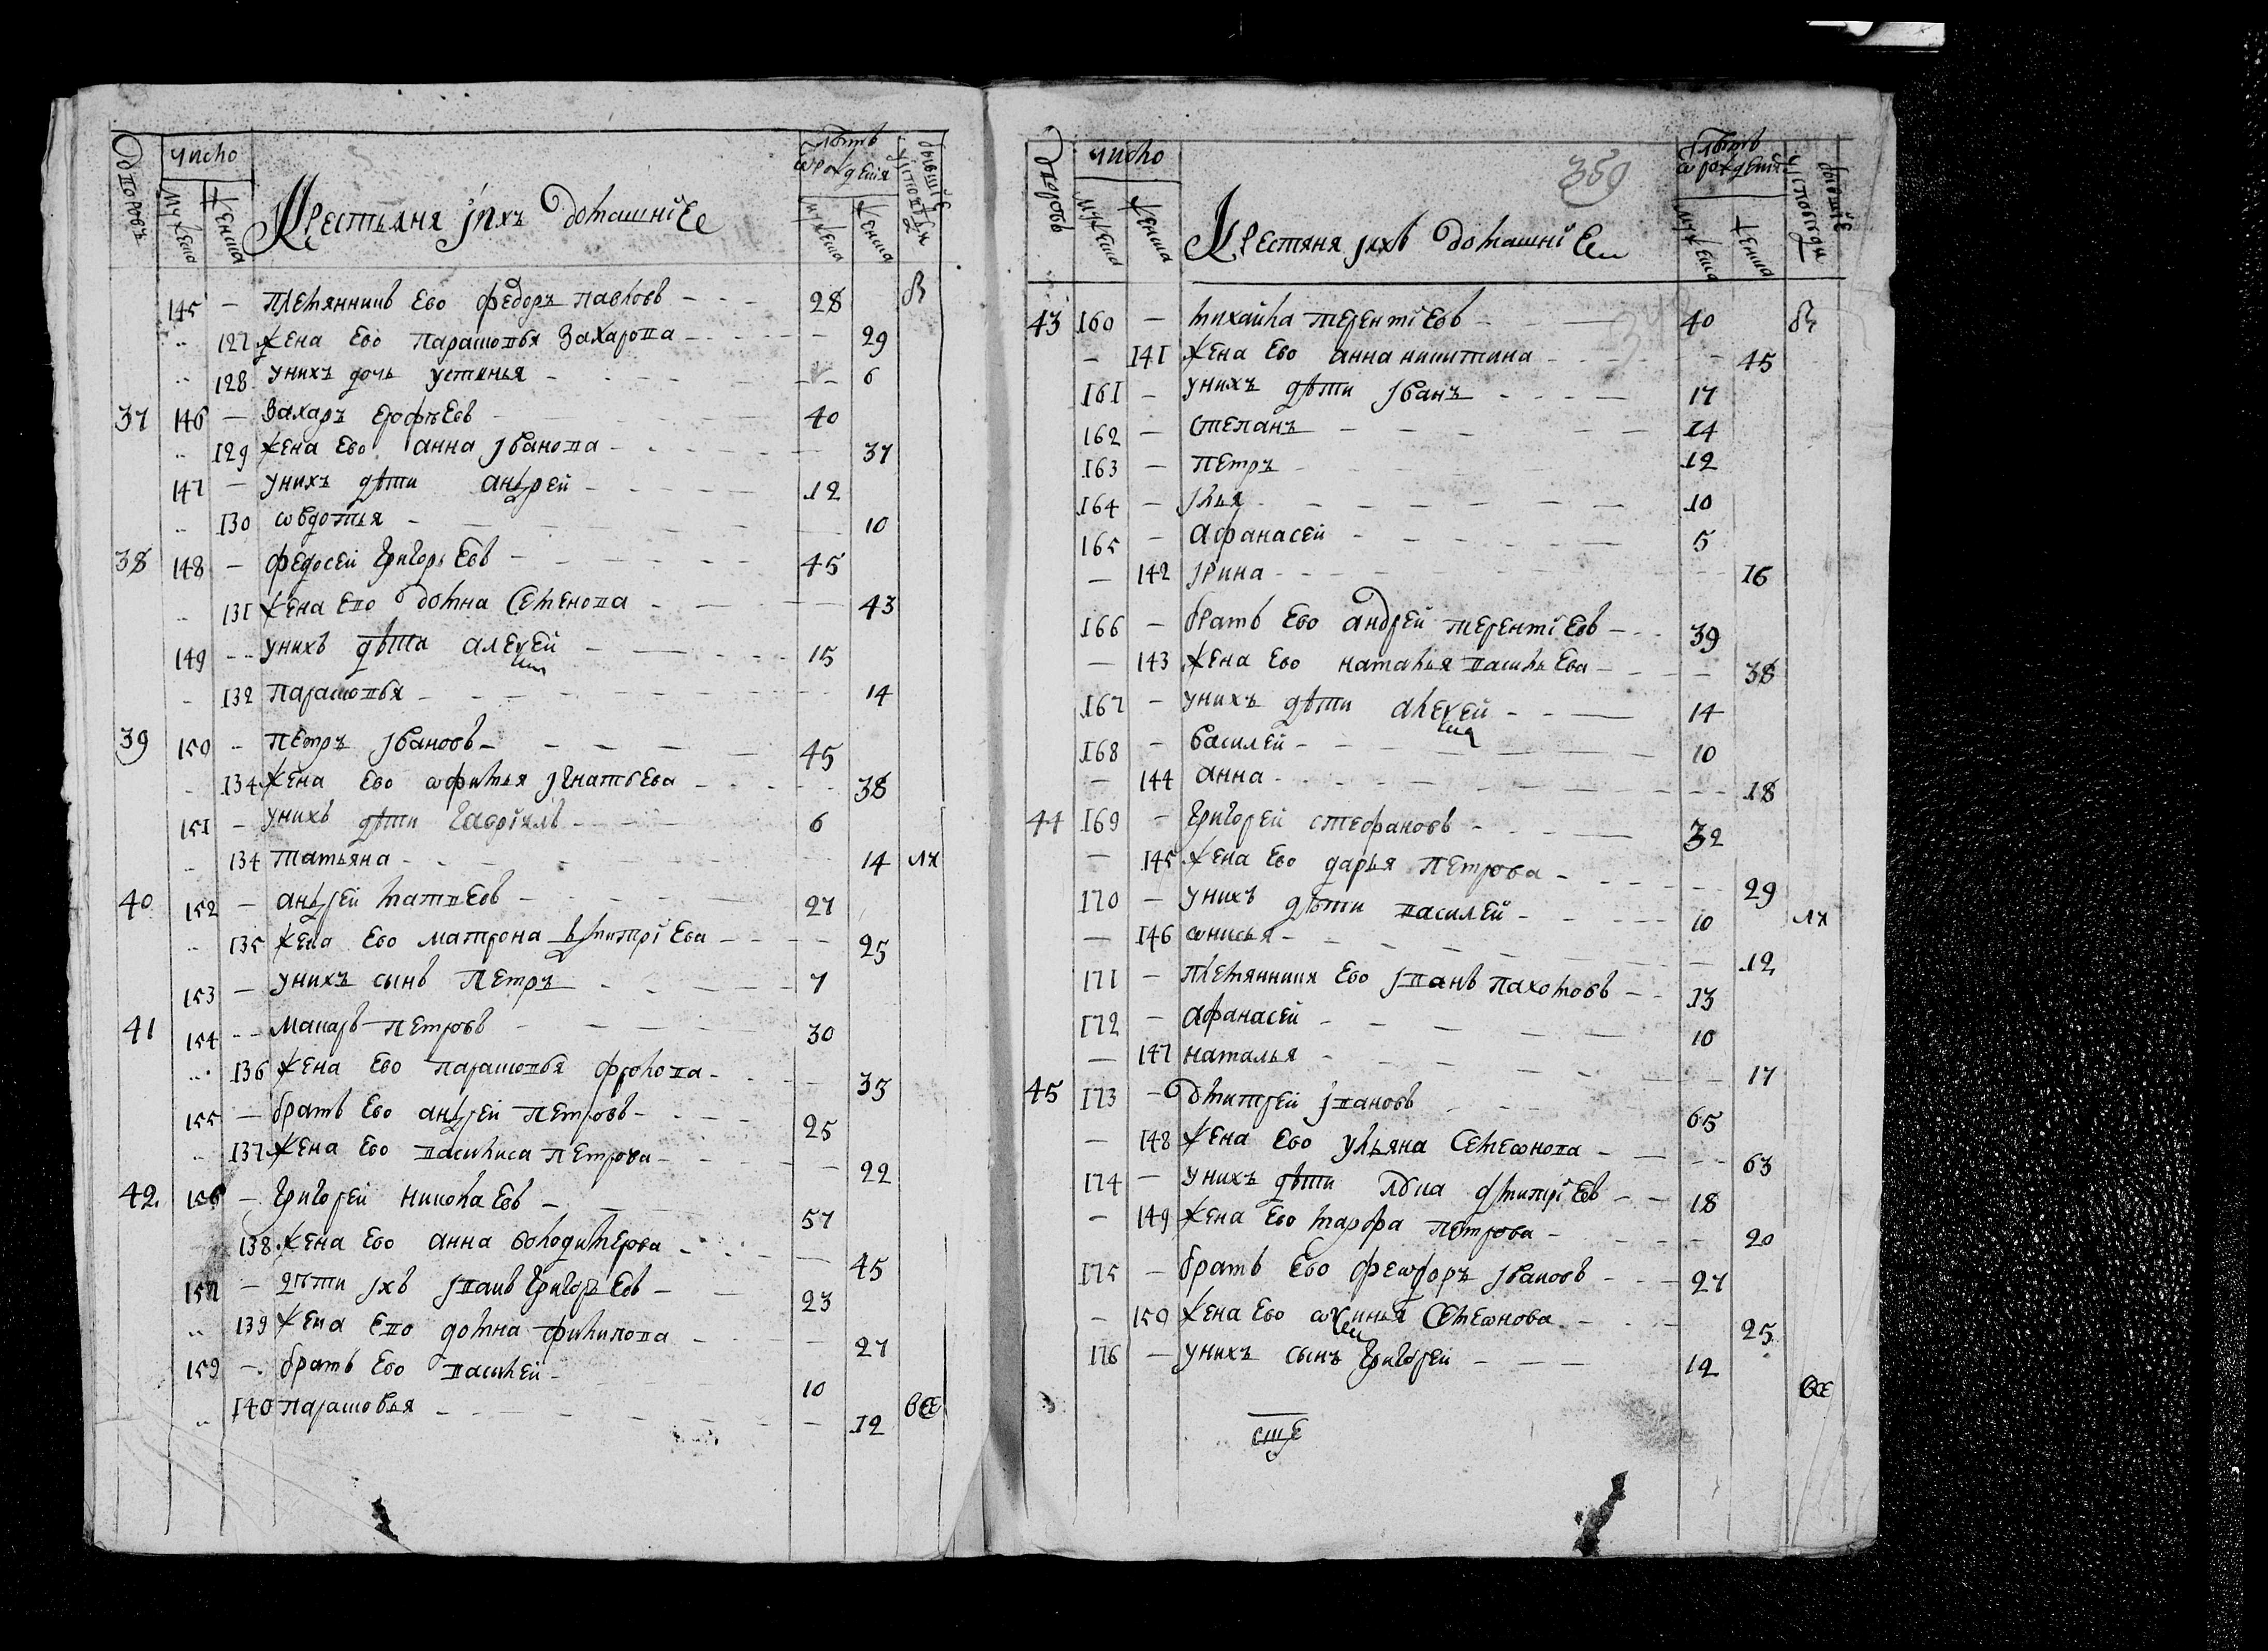 дворовъ число лѣтъ ѿ рождения бывшие у исповеди
мужеска женска Крестьяня ихъ домашние мужеска женска
145 — племянникъ ево федоръ павловъ 28 в
127 жена ево парасковья захарова 29
128 у нихъ дочь устинья 6
37 146 — захаръ ерофѣевъ 40
129 жена ево анна иванова 37
147 — у нихъ дѣти андрей 12
130 ѡвдотья 10
38 148 — федосей григорьевъ 45
131 жена ево домна семенова 43
149 у нихъ дѣти алексей 15
132 парасковья 14
39 150 петръ ивановъ 45
134 жена ево ѡфимья игнатьева 38
151 — у нихъ дѣти гаврилъ 6
134 татьяна 14
40 152 — андрей матвевъ 27
135 жена ево матрона дмитриева 25
153 — у нихъ сынъ петръ 7
41 154 макаръ петровъ 30
136 жена ево парасковья фролова 35
155 — братъ ево андрей петровъ 25
137 жена ево василиса петрова 22
42 156 — григорей николаевъ 57
138 жена ево анна володимерова 45
157 — дѣти ихъ иванъ григорьевъ 23
139 жена ево домна филипова 27
159 — братъ ево василей 10
140 парасковья 12 все
359
дворовъ число лѣтъ ѿ рождения бывшие у исповеди
мужеска женска Крестяня ихъ домашние мужеска женска
43 160 — михаила терентиевъ 40 в
— 141 жена ево анна никитина 45
161 — у нихъ дѣти иванъ 17
162 — степанъ 14
163 — петръ 12
164 — илья 10
165 — афанасей 5
— 142 ирина 16
166 — братъ ево андрей терентиевъ 39
— 143 жена ево наталья васильева 38
167 — у нихъ дѣти алексей 14
168 — василей 10
— 144 анна 18
44 169 — григорей стефановъ 32
— 145 жена ево дарья петрова 29
170 — у нихъ дѣти василей 10
— 146 ѡнисья 12
171 — племянники ево иванъ пахомовъ 13
172 — афанасей 10
— 147 наталья 17
45 173 — дмитрей ивановъ 65
— 148 жена ево ульяна семеѡнова 63
174 — у нихъ дѣти дмитриевъ 18
— 149 жена ево марфа петрова 20
175 — братъ ево феѡдоръ ивановъ 27
— 150 жена ево ѡксинья семеѡнова 25
176 — у нихъ сынъ григорей 12
все